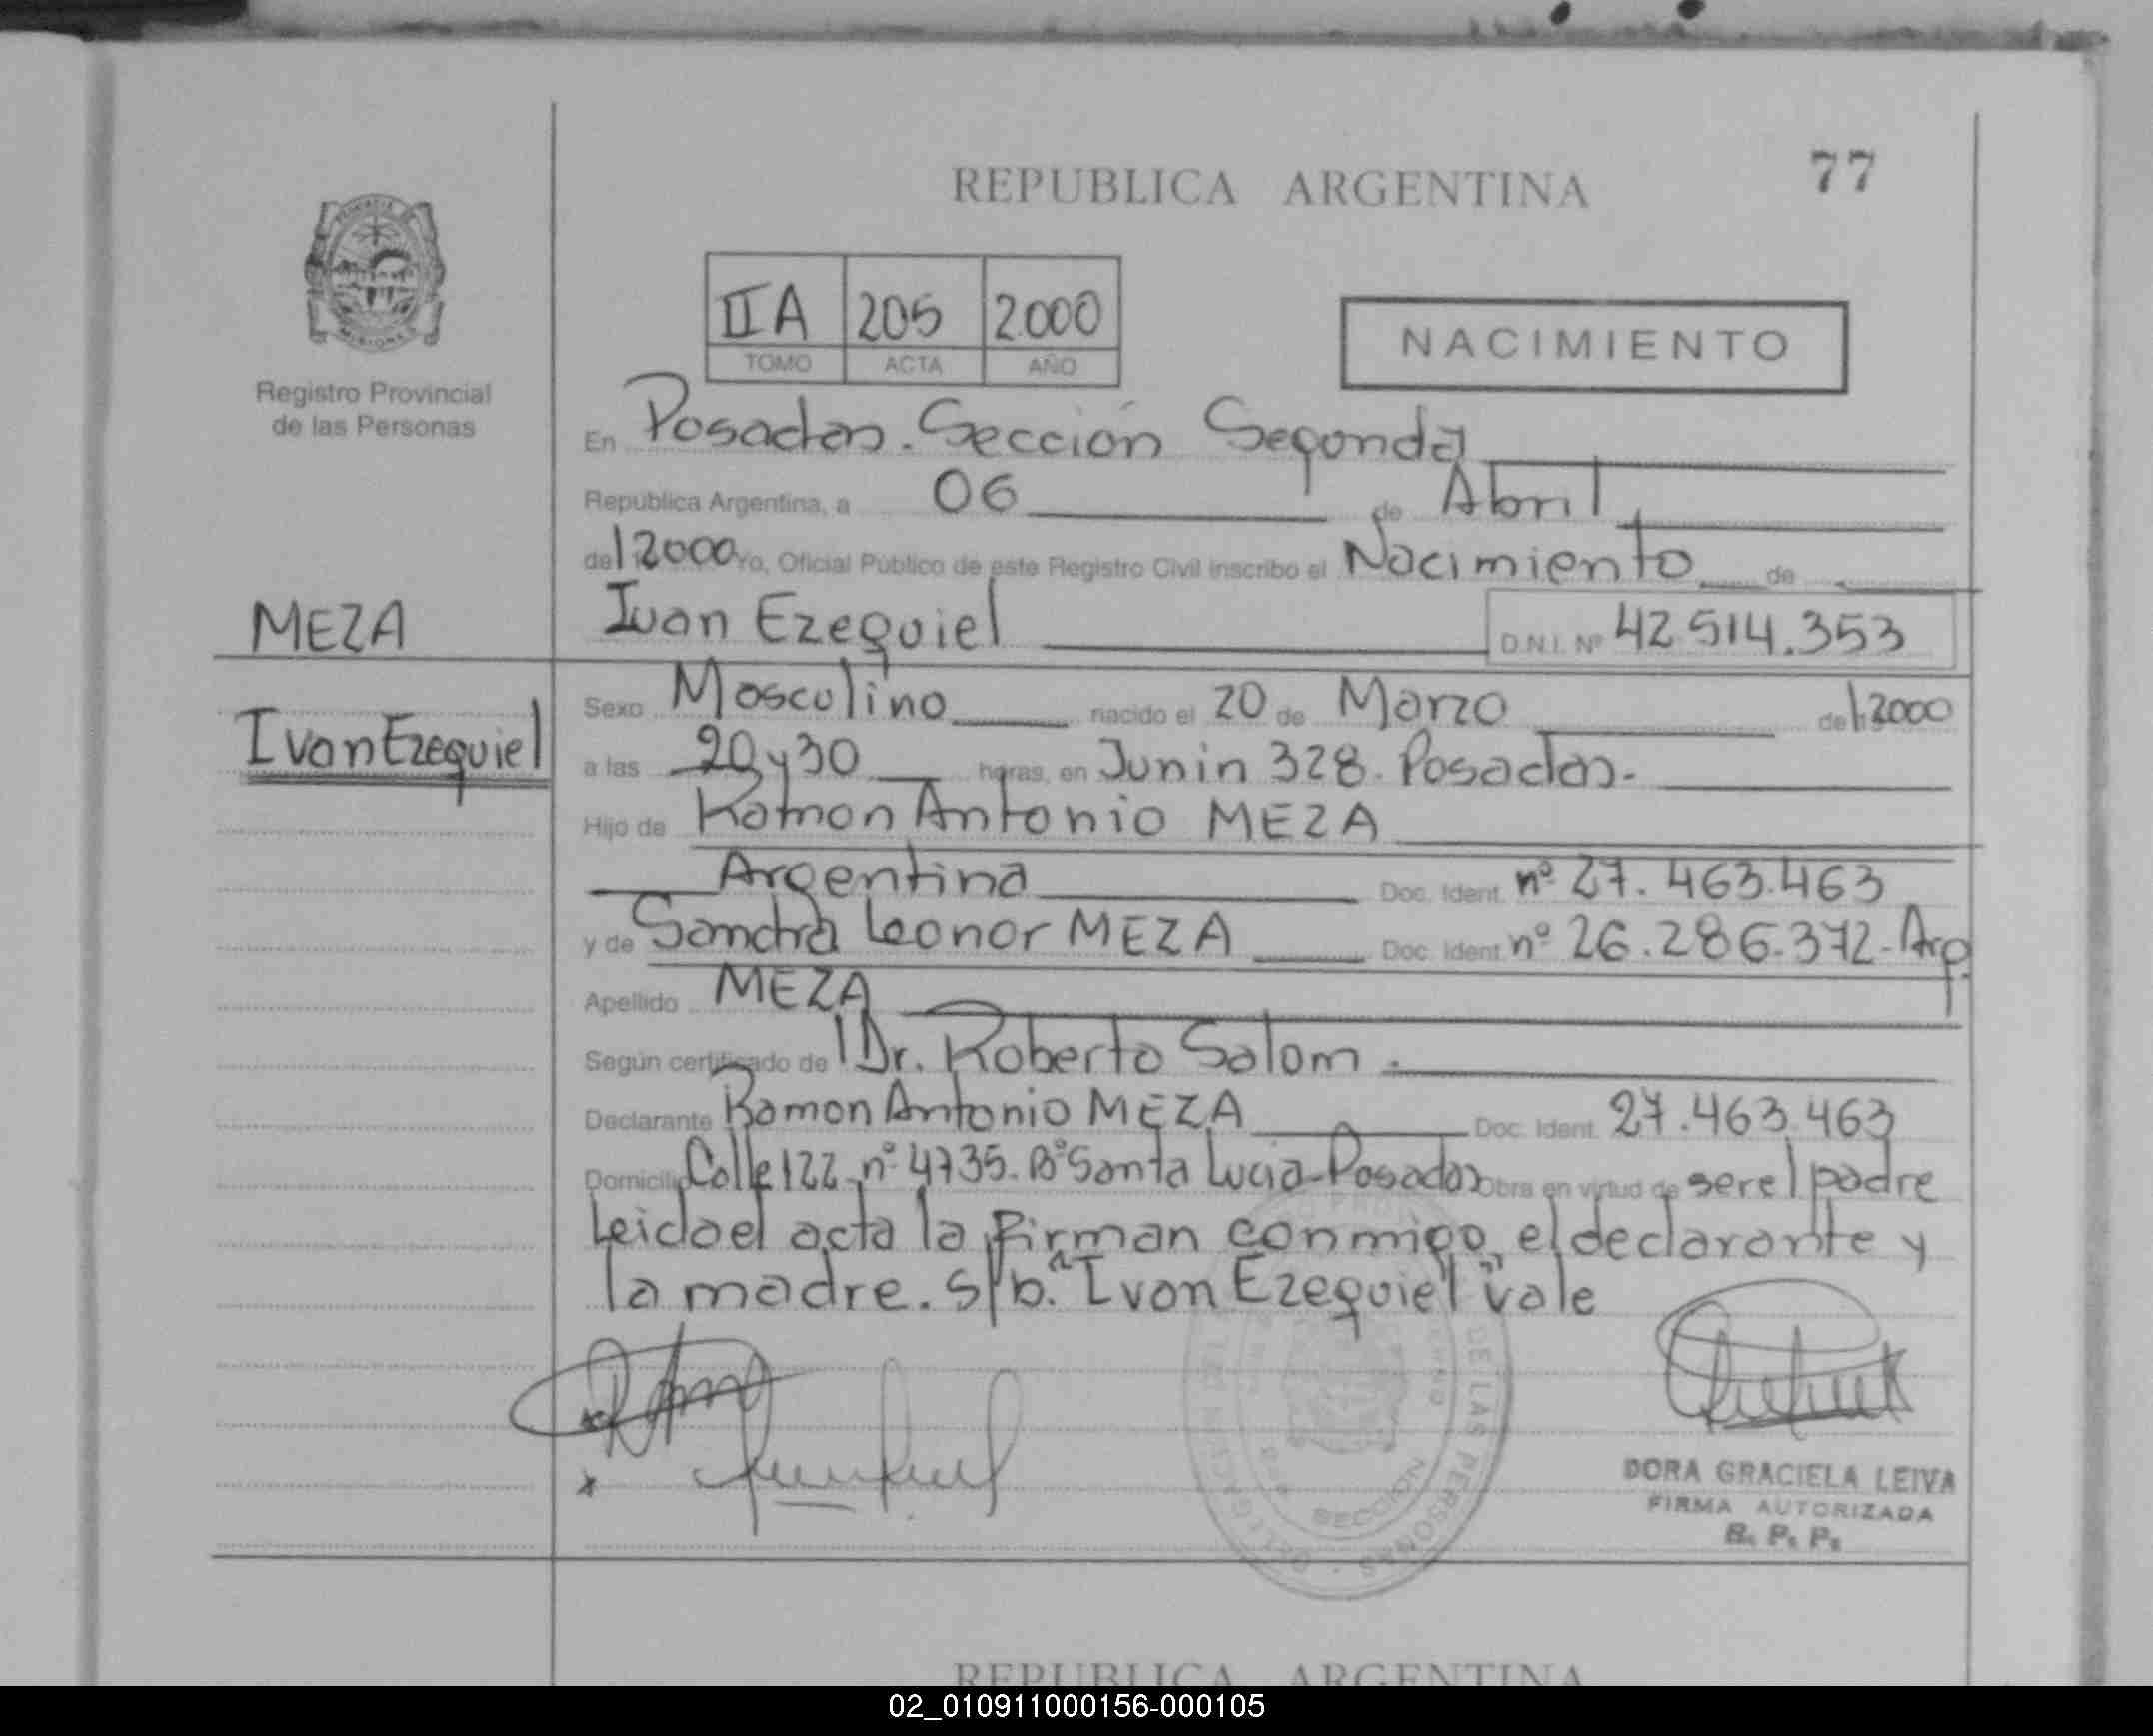 77
REPUBLICA ARGENTINA
IIA 205 2000
TOMO ACTA AÑO
NACIMIENTO
Registro Provincial
de las Personas
En Posadas. Sección Segunda
Republica Argentina, a 06 de Abril
del 2000 Yo, Oficial Público de este Registro Civil inscribo el Nacimiento de
MEZA
Ivan Ezequiel D.N.I. Nº 42.514.353
Ivan Ezequiel
Sexo Masculino nacido el 20 de Marzo del 2000
a las 20y30 horas, en Junin 328. Posadas.
Hijo de Ramon Antonio MEZA
Argentina Doc. Ident. nº 27.463.463
y de Sandra Leonor MEZA Doc. Ident. nº 26.286.372-Arg.
Apellido MEZA
Según certificado de l Dr. Roberto Salom.
Declarante Ramon Antonio MEZA Doc. Ident. 27.463.463
Domicilio Calle 122 nº 4735. Bº Santa Lucia-Posadas Obra en virtud de ser el padre
Leida el acta la firman conmigo, el declarante y
la madre. s/b. "Ivan Ezequiel" vale
DE LAS PERSONAS
SECCION
DORA GRACIELA LEIVA
FIRMA AUTORIZADA
R. P. P.
REPUBLICA ARGENTINA
02_010911000156-000105